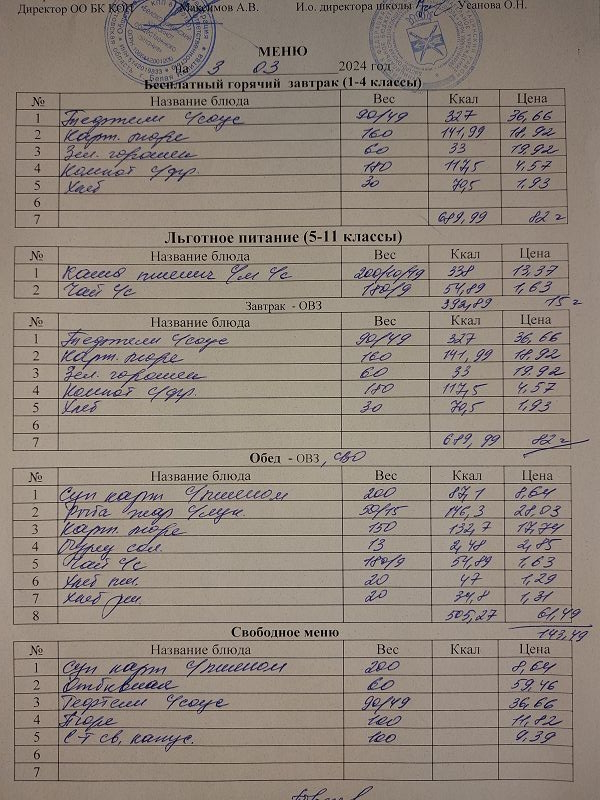 Директор ОО БК КОП Максимов А.В. И.о. директора школы Усанова О.Н.
МЕНЮ
на 3 03 2024 год
Бесплатный горячий завтрак (1-4 классы)
№ Название блюда Вес Ккал Цена
1 Тефтели с/соус 90/49 327 36,66
2 Карт. пюре 160 141,99 18,92
3 Зел. горошек 60 33 19.92
4 Компот с/фр. 180 117,5 4.57
5 Хлеб 30 70,5 1,93
6
7 689,99 82
Льготное питание (5-11 классы)
№ Название блюда Вес Ккал Цена
1 Каша пшенич с/м с/с 200/10/49 338 13,37
2 Чай с/с 180/9 54,89 1,63
392,89 15
Завтрак - ОВЗ
№ Название блюда Вес Ккал Цена
1 Тефтели с/соус 90/49 327 36,66
2 Карт. пюре 160 141,99 18,92
3 Зел. горошек 60 33 19.92
4 Компот с/фр. 180 117,5 4.57
5 Хлеб 30 70,5 1,93
6
7 689,99 82
Обед - ОВЗ, СВО
№ Название блюда Вес Ккал Цена
1 Суп карт с/пшеном 200 87,1 8,64
2 Рыба жар с/лук. 50/15 146,3 28,03
3 Карт. пюре 150 132,7 17,74
4 Огурец сол. 13 2,48 2,85
5 Чай с/с 180/9 54,89 1,63
6 Хлеб пш. 20 47 1,29
7 Хлеб рж. 20 34,8 1,31
8 505,27 61,49
143,49
Свободное меню
№ Название блюда Вес Ккал Цена
1 Суп карт с/пшеном 200 8,64
2 Отбивная 60 59,46
3 Тефтели с/соус 90/49 36,66
4 Пюре 100 11,82
5 С-т св. капус. 100 9,39
6
7